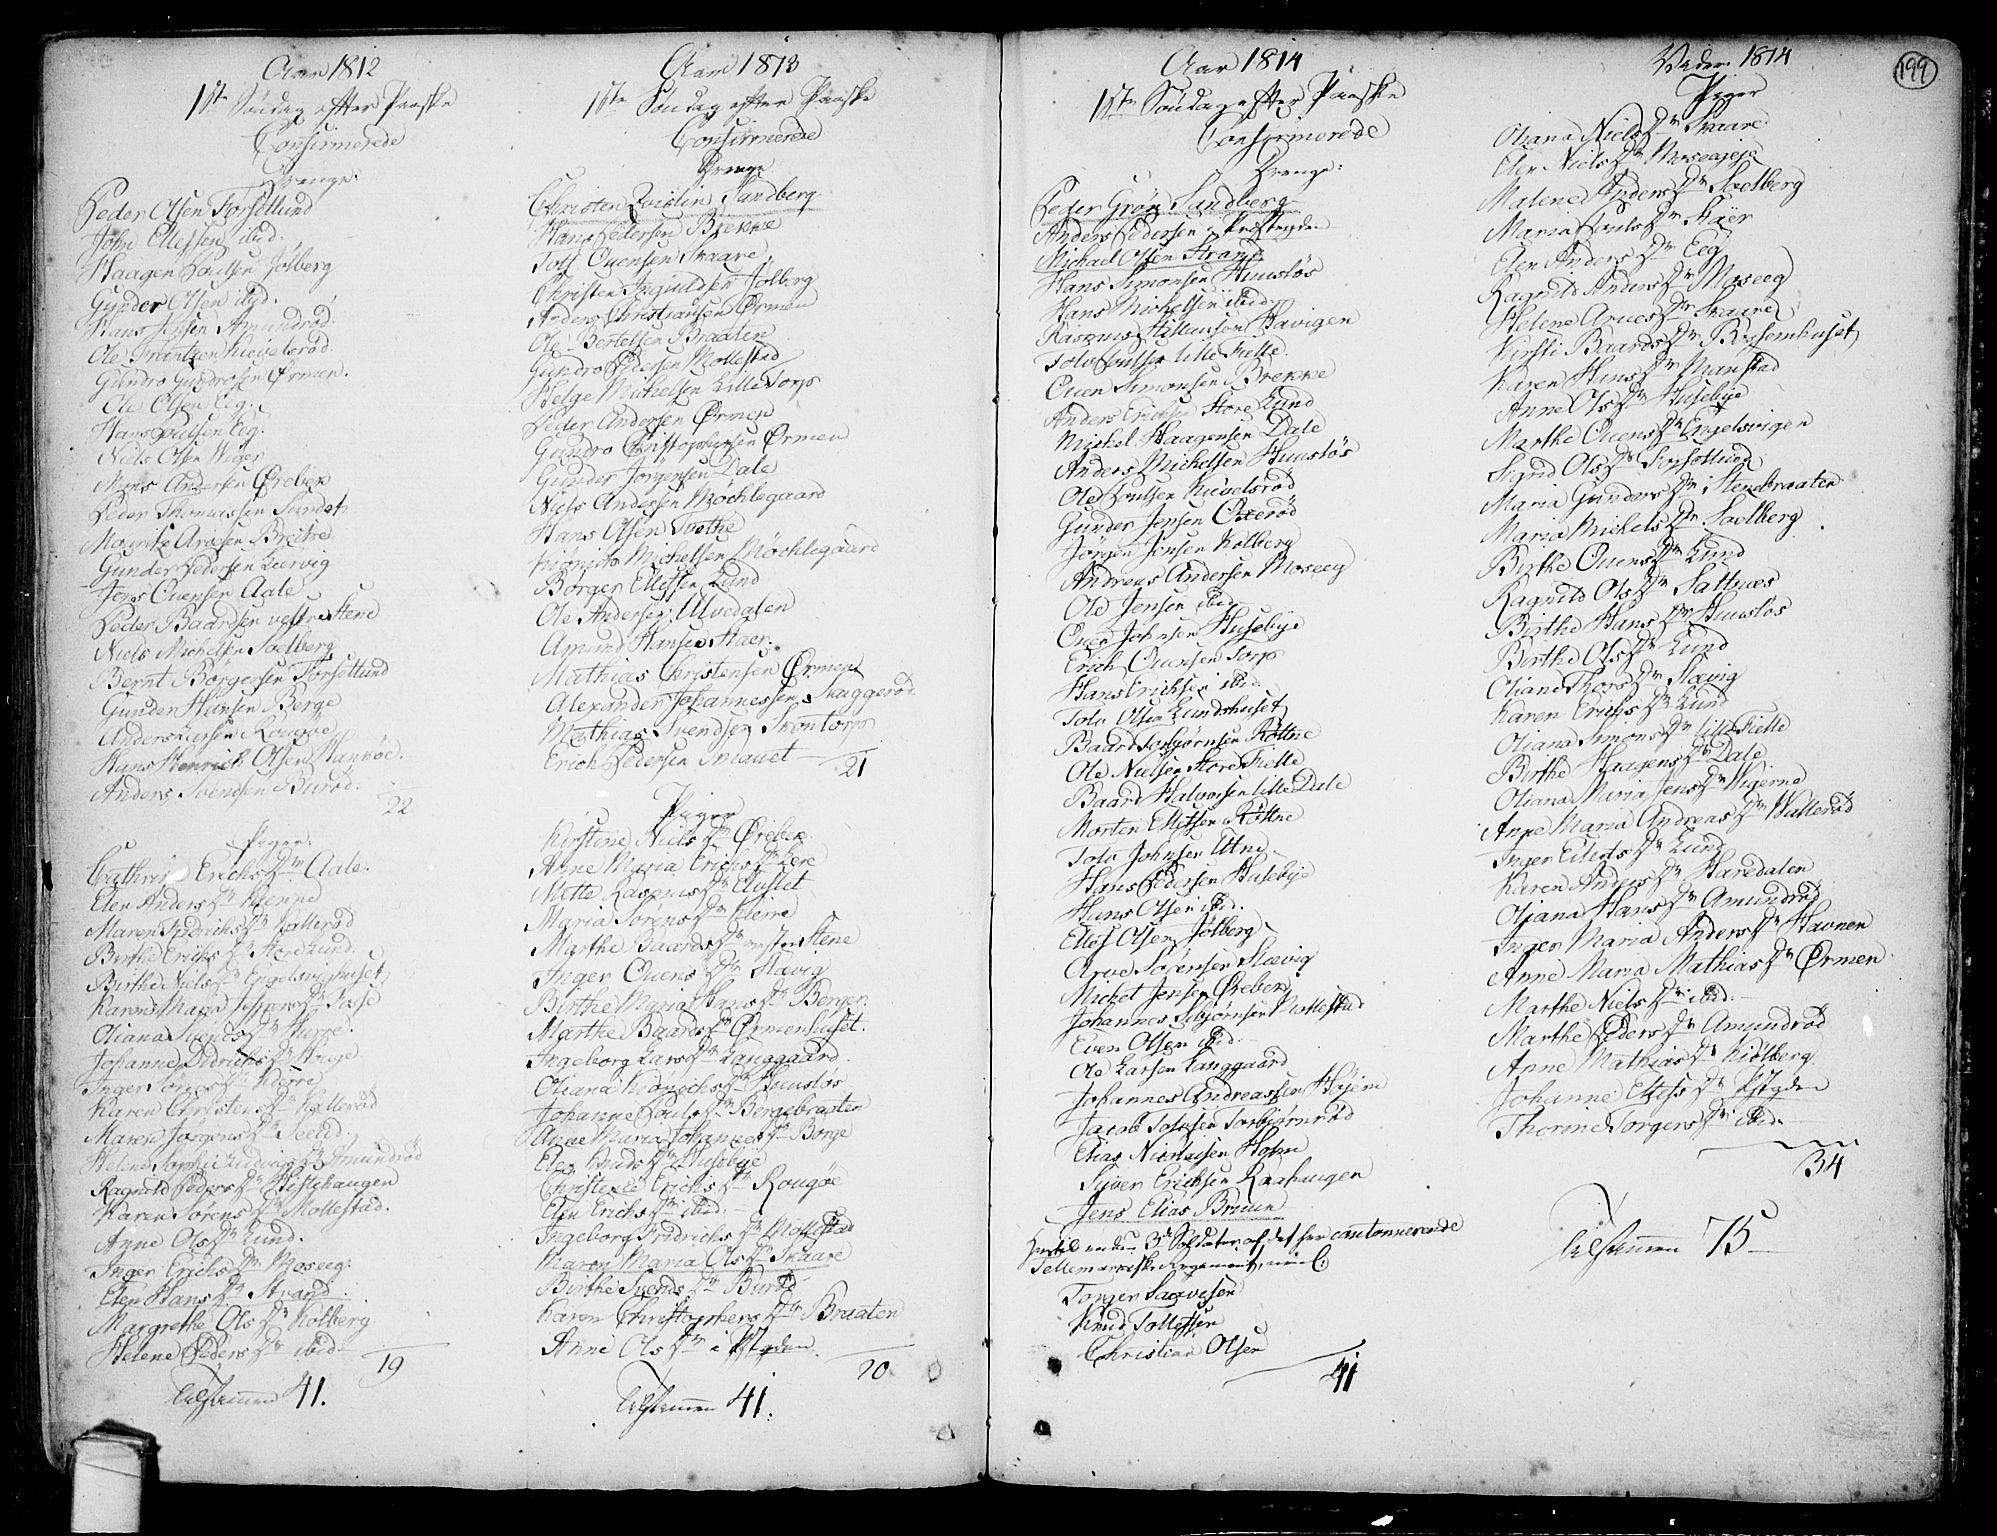 Aar 1812
1ste Søndag efter Paaske
Confirmerede
Drenge.
Peder Olsen Torsetlund
John Ellefsen ibid.
Haagen Poulsen Jølberg
Gunder Olsen ibid.
Hans Jensen Amundrød
Ole Frantzen Kievelsrød
Gundro Gundrosen Ørmen.
Ole Olsen Eeg.
Hans Poulsen Eeg.
Niels Olsen Viger
Mons Andersen Ørebek
Peder Thomassen Sundet
Mouritz Aresen Breitre
Gunder Pedersen Lervig
Jens Ouensen Aale
Peder Baardsen vestre Stene
Niels Michelsen Soelberg
Bernt Børgersen Torsetlund
Gunder Hansen Berge
Anders Larsen Rougøe
Hans Henrich Olsen Hankøe.
Anders Svendsen Burød.
22
Piger.
Cathrine Erichs Dtr Aale.
Elen Anders Dr Kienne
Maren Fridrichs Dr Kallerød
Birthe Erichs Dr Store Lund.
Birthe Niels Dr Engelsvighuset
Karen Maria Jeppes Dr
Oliana Svends Dr
Johanne Didrichs Dr
Inger Jens Dr Kierre
Karen Christens Dr Kallerød
Maren Jørgens Dr
Helene Sophie Ludvigs Dr Amundrød
Ragnild Peders Dr Hestehaugen
Karen Sørens Dr Mollestad.
Anne Ols Dr Lund.
Inger Erichs Dr Moseeg.
Elen Hans Dr Strand.
Margrethe Ols Dr Kolberg
Helene Peders Dr ibid
19
Tilsammen 41.
Aar 1813
1ste Søndag efter Paaske
Confirmerede
Drenge
Christen Qvislin Sandberg
Hans Pedersen Brekke
Tolf Ouensen Skaare
Christen Ingvildsen Jølberg
Anders Christiansen Ørmen
Ole Bertelsen Braaten
Gundro Pedersen Mollestad
Helge Michelsen Lille Torp
Peder Andersen Ørmen
Gundro Christophersen Ørmen
Gunder Jørgensen Dale
Niels Andersen Møchlegaard
Hans Olsen Tvethe
Michelsen Møchlegaard
Børger Ellefsen Lund
Ole Andersen Ulvedalen
Amund Hansen Staer.
Mathias Christensen Ørmen
Alexander Johannessen Skaggerød
Mathias Svendsen Skontorp
Erich Pedersen
21
Piger
Kirstine Niels Dr Ørebek
Anne Maria Erichs Dr Lere
Mette Rasmus Dr
Maria Sorens Dr Kierre
Marthe Baards Dr Stene
Inger Ouens Dr Slævig
Birthe Maria Hans Dr Bergen
Marthe Baards Dr Ørmenhuset.
Ingeborg Lars Dr Langgaard.
Oliana Dr Huusløs
Johanne Pouls Dr Bergebraaten
Anne Maria Johannes Dr Borge
Elen Knuds Dr Husebye
Christence Erichs Dr Rougøe
Elen Erichs Dr ibid.
Ingeborg Fridrichs Dr Mollestad
Maren Maria Ols Dr Skaare
Birthe Svends Dr Burød
Karen Christophers Dr Braaten
Anne Ols Dr i Pstgden.
20
Tilsammen 41.
Aar 1814
1ste Søndag efter Paaske
Confirmerede
Drenge:
Peder Grøn Sandberg
Anders Pedersen i Prestegden
Michael Olsen Strand
Hans Simonsen Huusløs
Hans Michelsen ibid.
Rasmus Havigen
Tolv Poulsen lille Fielle
Ouen Simonsen Brekke
Anders Erichsen Store Lund
Michel Haagensen Dale
Anders Michelsen Huusløs
Ole Poulsen Kievelsrød
Gunder Jensen Oxerød
Jørgen Jensen Kolberg
Andreas Andersen Moseeg
Ole Jensen ibid.
Ouen Johnsen Husebye
Erich Ouensen Torp
Hans Erichsen ibid.
Tolv Olsen Lundshuset
Baard Torbjørnsen Røtne
Ole Nielsen Store Fielle
Baard Halvorsen lille Dale
Morten Ellefsen Røtne
Tolv Johnsen Utne
Hans Pedersen Husebye
Hans Olsen ibid.
Ellef Olsen Jølberg
Arve Sørensen Slævig
Michel Jensen Ørebek
Johannes Mollestad
Even Olsen ibid.
Ole Larsen Langgaard
Johannes Andreassen Hiem
Jacob Tolvsen Torbjørnrød
Elias Nicolaisen Holm
Syver Erichsen Raahaugen
Jens Elias Bruun
3de Soldater af det her cantonnerende
Tellemarkske Regement, neml:
Torger Saavesen
Knud Tollefsen
Christian Olsen
41
Videre 1814
Piger
Oliana Niels Dr Skaare
Elen Niels Dr Moseageje
Malene Anders Dr Soelberg
Maria Pouls Dr Staer
Elen Anders Dr Eeg
Ragnild Anders Dr Moseeg
Helene Arves Dr Skaare
Kirsti Baards Dr
Karen Hans Dr Manstad
Anne Ols Dr Husebye
Marthe Ouens Dr Engelsvigen
Sigrid Ols Dr Torsetlund
Maria Gunders Dr i Stenbraaten
Maria Michels Dr Soelberg
Birthe Ouens Dr Lund
Ragnild Ols Dr Saltnæs
Birthe Hans Dr Huusløs
Berthe Ols Dr Lund
Oliana Thors Dr Slævig
Karen Erichs Dr Lund
Oliana Simons Dr lille Fielle
Birthe Haagens Dr Dale
Oliana Maria Jens Dr Vigerne
Anne Maria Andreas Dr Wallerød
Inger Eilerts Dr Lund
Karen Anders Dr Haredalen
Oliana Hans Dr Amundrød
Inger Maria Anders Dr Havnen
Anne Maria Mathias Dr Ørmen.
Marthe Niels Dr ibid.
Marthe Peders Dr Amundrød
Anne Mathias Dr Kiølberg
Johanne Ellefs Dr Pstgden
Thorine Torgers Dr ibid.
34
Tilsammen 75
199